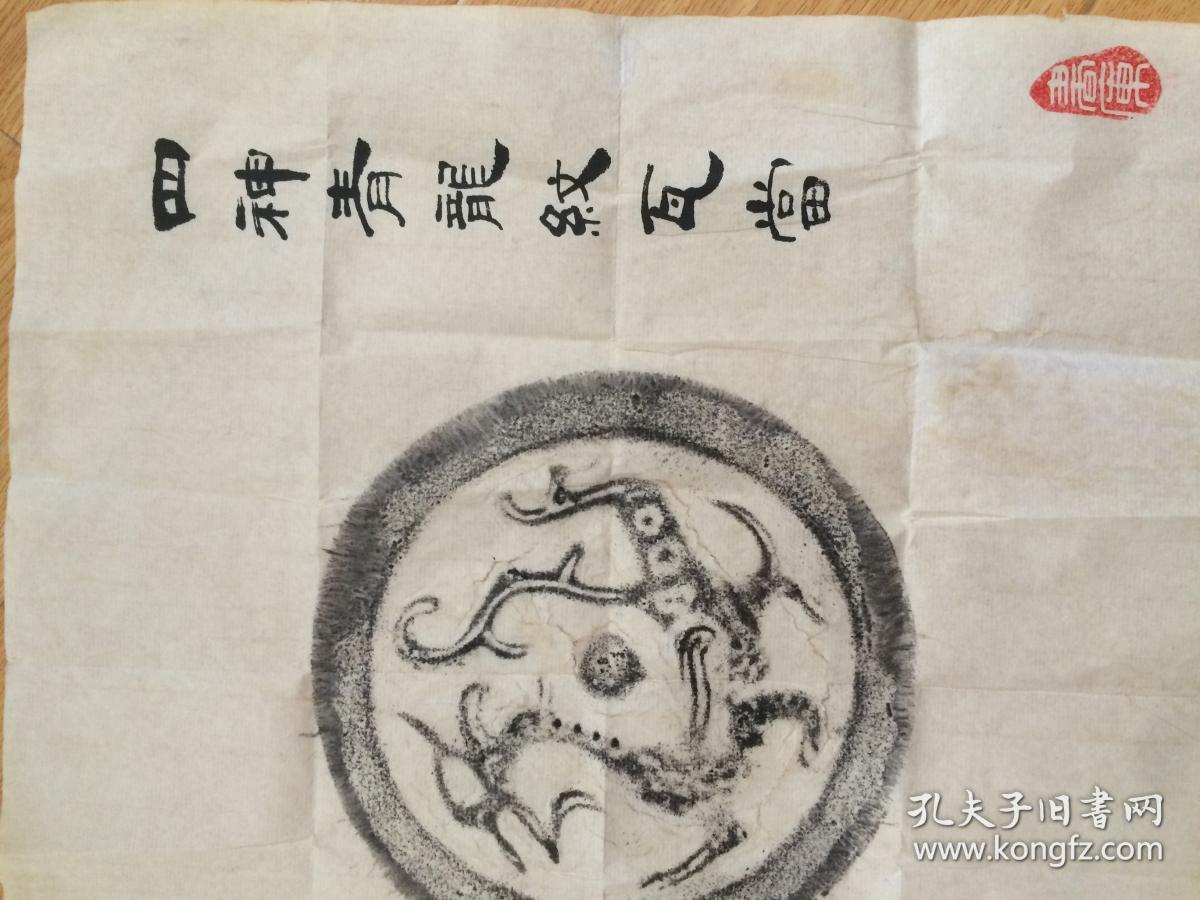 四神青龍紋瓦當
孔夫子旧書网
www.kongfz.com